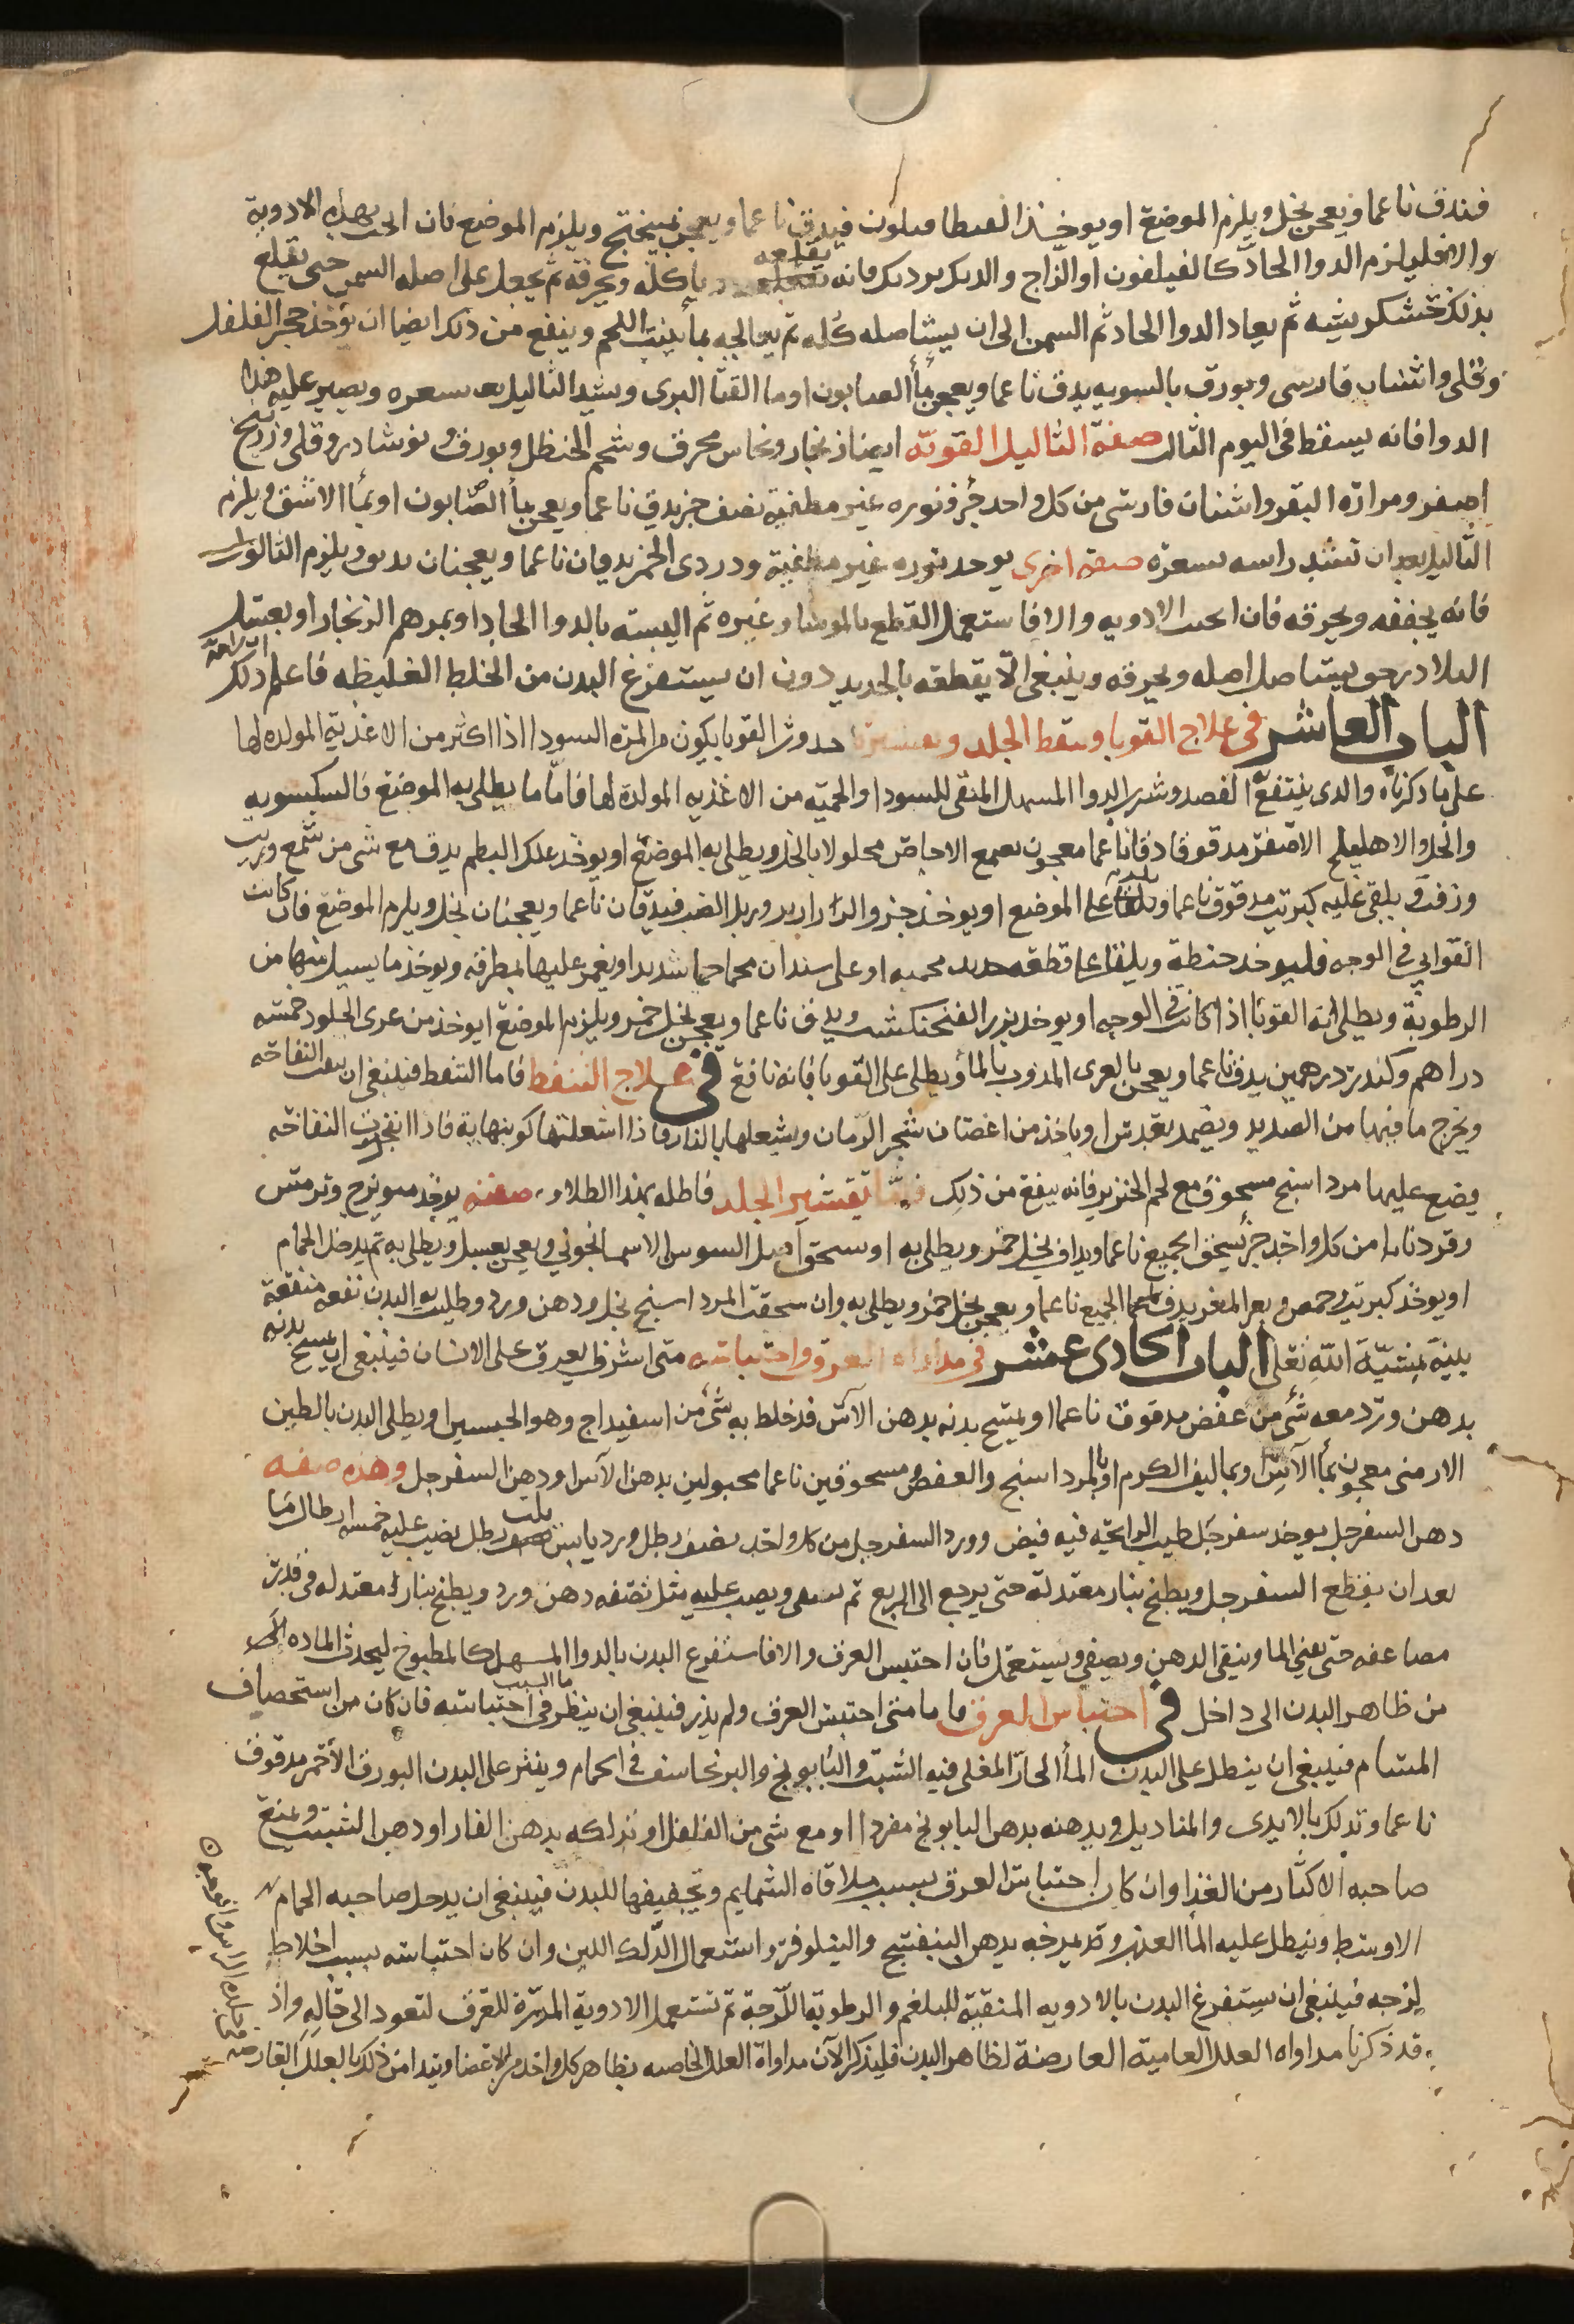 فيدق ناعما ويعجن بخل ويلزم الموضع او يوخذ فيدق ناعما ويعجن بميبختج ويلزم الموضع فان انجب بهذه الادوية
والا فليلزم الدوا الحاد كالفيلفون او الزاج والديك برديك فانه يقلعه ياكله ويحرقه ثم يجعل على اصله السمن حتى يقلع
بذلك خشكريشه ثم يعاد الدوا الحاد ثم السمن الى ان يستاصله كله ثم يعالجه بما ينبت اللحم وينفع من ذلك ايضا ان يوخذ حجر الفلفل
وقلى واشنان فارسى وبورق بالسويه يدق ناعما ويعجن بما الصابون او ما القثا البرى ويشد الثاليل بعد بشعره ويصير عليه هذا
الدوا فانه يسقط فى اليوم الثالث صفة الثاليل القوية ايضا زنجار ونحاس محرق وشحم الحنظل وبورق ونوشادر وقلى وزرنيخ
اصفر ومرارة البقر واشنان فارسى من كل واحد جز ونوره غير مطفية نصف جز يدق ناعما ويعجن بما الصابون او بما الاشق ويلزم
الثاليل بعد ان تشد راسه بشعره صفة اخرى يوخذ نوره غير مطفية ودردى الخمر يدقان ناعما ويعجنان ويلزم الثالول
فانه يجففه ويحرقه فان انجب الادويه والا فاستعمل القطع بالموسا وغيره ثم البسته بالدوا الحاد او بمرهم الزنجار او بعسل
البلادر حتى يستاصل اصله ويحرقه وينبغى الا يقطعه بالحديد دون ان يستفرغ البدن من الخلط الغليظه فاعلم ذلك
الباب العاشر فى علاج القوبا ونفط الجلد وتقشيره حدوث القوبا يكون من المرة السودا اذا اكثر من الاغذية المولده لها
على ما ذكرناه والذى ينتفع الفصد وشرب الدوا المسهل المنقى للسودا والحميه من الاغذيه المولدة لها فاما ما يطلى به الموضع فالسكسويه
والخل والاهليلج الاصفر مدقوقا دقا ناعما معجون بصمغ الاجاص محلولا بالخل ويطلى به الموضع او يوخذ علك البطم يدق مع شى من شمع وزيت
وزفت ويلقى عليه كبريت مدقوق ناعما ويلقا على الموضع او يوخذ جز والذراريد وزبل الضب فيدقان ناعما ويعجنان بخل ويلزم الموضع فان كانت
القوابى فى الوجه فليوخذ حنطة ويلقا على قطعه حديد محميه او على سندان محما حما شديدا ويغمز عليها بمطرقه ويوخذ ما يسيل منها من
الرطوبة ويطلى به القوبا اذا كانت فى الوجه او يوخذ بزر الفنجنكشت ويدق ناعما ويعجن بخل خمر ويلزم الموضع او يوخذ من غرى الجلود خمسه
دراهم وكندر درهمين يدق ناعما ويعجن بالغرى المذوب بالما ويطلى على القوبا فانه نافع فى علاج النفط فاما النفط فينبغى ان تفقا النفاخه
ويخرج ما فيها من الصديد ويضمد بعدس او ياخذ من اغصان شجر الرمان ويشعلها بالنار فاذا اشعلتها كو بنهاية فاذا انفجرت النفاخه
يضع عليها مرداسنج مسحوق مع لحم الخنزير فانه ينفع من ذلك فاما تقشير الجلد فاطله بهذا الطلاء صفته يوخذ ميويزج وترمس
وقردمانا من كل واحد جز يسحق الجميع ناعما ويداف بخل خمر ويطلى به او سحق اصل السوسن الاسمانجونى ويعجن بعسل ويطلى به ثم يدخل الحمام
او يوخذ كبريت وحمص وبعر المعز يدق الجميع ناعما ويعجن بخل خمر ويطلى به وان سحقت المرداسنج بخل ودهن ورد وطليت به البدن نفعه منفعة
بلينة بمشيئة الله تعلى الباب الحادى عشر فى مداواه العرق واحتباسه متى اشرف العرق على الانسان فينبغى ان يمسح بدنه
بدهن ورد معه شى من عفص مدقوق ناعما او يمسح بدنه بدهن الاس قد خلط به شى من اسفيداج وهو الجبسين او يطلى البدن بالطين
الارمنى معجون بما الاس او بما ليف الكرم او بالمرداسنج والعفص مسحوقين ناعما مجبولين بدهن الاس او دهن السفرجل وهذه صفه
دهن السفرجل يوخذ سفرجل طيب الرايحة فيه قبض وورد السفرجل من كل واحد نصف رطل ورد يابس ثلث رطل يصب عليه خمسه ارطال ما
بعد ان يقطع السفرجل ويطبخ بنار معتدلة حتى يرجع الى الربع ثم يصفى ويصب عليه مثل نصفه دهن ورد ويطبخ بنار معتدله فى قدر
مضاعفه حتى يفنى الما ويبقى الدهن ويصفى ويستعمل فان احتبس العرق والا فاستفرغ البدن بالدوا المسهل كالمطبوخ ليجذب الماده
من ظاهر البدن الى داخل فى احتباس العرق فاما متى احتبس العرق ولم يدر فينبغى ان ينظر ما السبب فى احتباسه فان كان من استحصاف
المسام فينبغى ان ينطل على البدن الما الحار المغلى فيه الشبت والبابونج والبرنجاسف فى الحمام وينثر على البدن البورق الاحمر مدقوق
ناعما وتدلك بالايدى والمناديل ويدهنه بدهن البابونج مفردا او مع شى من الفلفل او تدلكه بدهن الغار او دهن الشبت ويمنع
صاحبه الاكثار من الغذا وان كان احتباس العرق بسبب ملاقاة الشمايم وتجفيفها للبدن فينبغى ان يدخل صاحبه الحمام
الاوسط وينطل عليه الما العذب وتمرخه بدهن البنفسج والنيلوفر واستعمال الدلك اللين وان كان احتباسه بسبب اخلاط
لزجه فينبغى ان يستفرغ البدن بالادويه المنقية للبلغم والرطوبة اللزجة ثم تستعمل الادوية المدرة للعرق لتعود الى حاله واذ
قد ذكرنا مداواه العلل العامية العارضة لظاهر البدن فليذكر الان مداواة العلل الخاصه بظاهر كل واحد من الاعضا ونبدا من ذلك بالعلل العارضه